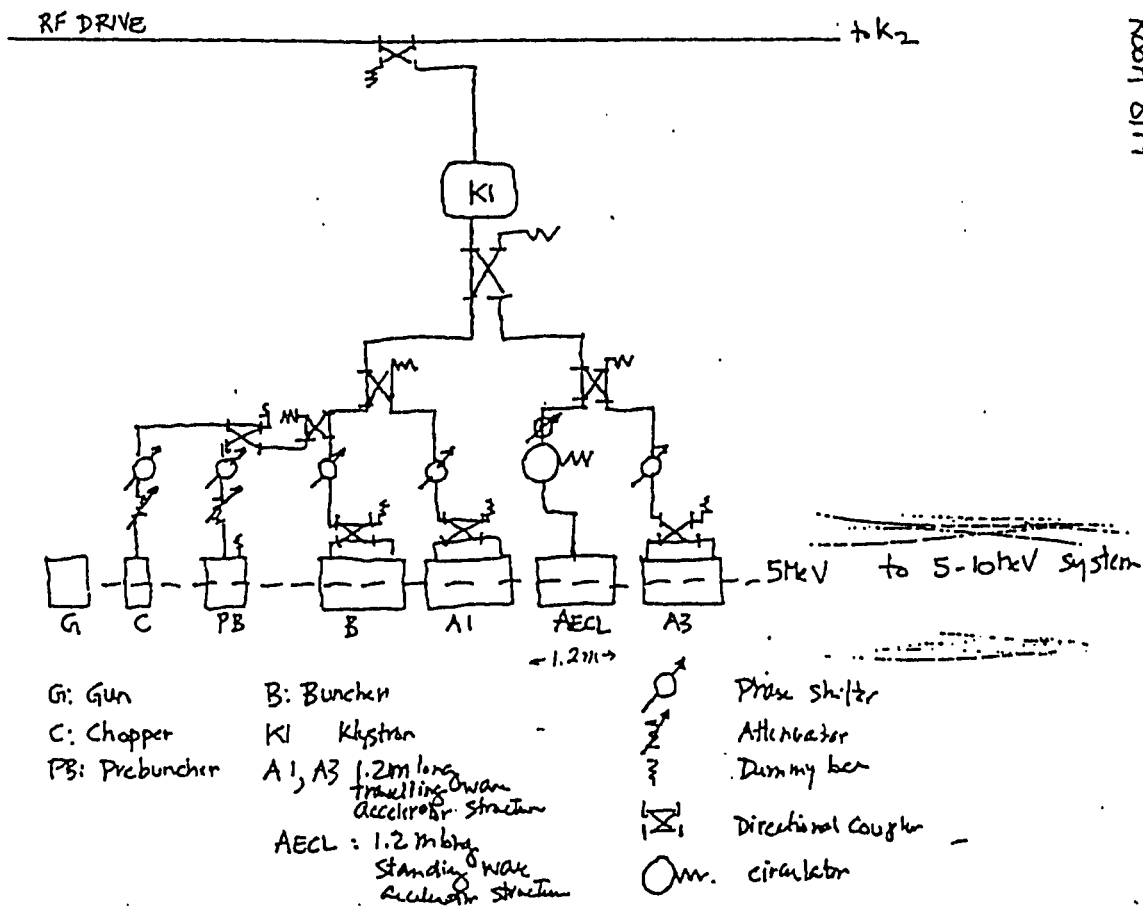 RF DRIVE
to K2
K1
5MeV to 5-10MeV System
G C PB B A1 AECL A3
←1.2m→
G: Gun
C: Chopper
PB: Prebuncher
B: Buncher
K1 Klystron
A1, A3 1.2m long
travelling wave
accelerator structure
AECL : 1.2 m long
Standing wave
accelerator structure
Phase Shifter
Attenuator
Dummy
Directional Coupler
circulator